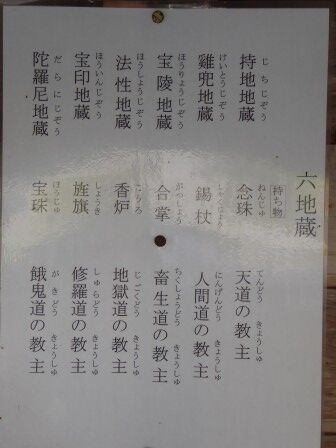 六地蔵
持ち物
持地地蔵 じちじぞう
念珠 ねんじゅ
天道の教主 てんどう きょうしゅ
雞兜地蔵 けいとうじぞう
錫杖 しゃくじょう
人間道の教主 にんげんどう きょうしゅ
宝陵地蔵 ほうりょうじぞう
合掌 がっしょう
畜生道の教主 ちくしょうどう きょうしゅ
法性地蔵 ほうしょうじぞう
香炉 こうろ
地獄道の教主 じごくどう きょうしゅ
宝印地蔵 ほういんじぞう
旌旗 しょうき
修羅道の教主 しゅらどう きょうしゅ
陀羅尼地蔵 だらにじぞう
宝珠 ほうじゅ
餓鬼道の教主 がきどう きょうしゅ